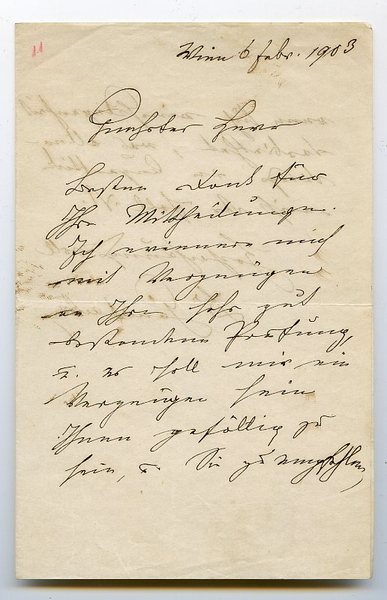 11
Wien 6 febr. 1903
Geehrter Herr
Besten Dank für
Ihre Mittheilungen.
Ich erinnere mich
mit Vergnügen
an Ihre sehr gut
bestandene Prüfung,
u. es soll mir ein
Vergnügen sein
Ihnen gefällig zu
sein, u. Sie zu empfehlen,